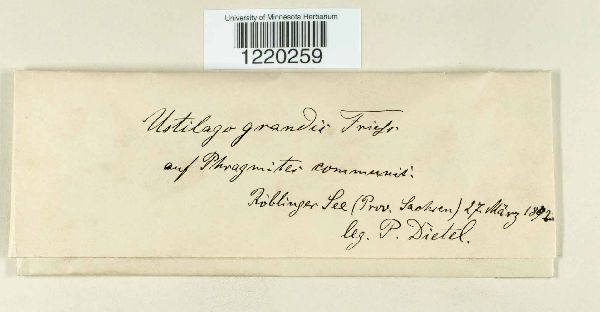 University of Minnesota Herbarium
1220259
Ustilago grandis Fries.
auf Phragmites communis.
Röblinger See (Prov. Sachsen) 27. März 1892
leg. P. Dietel.